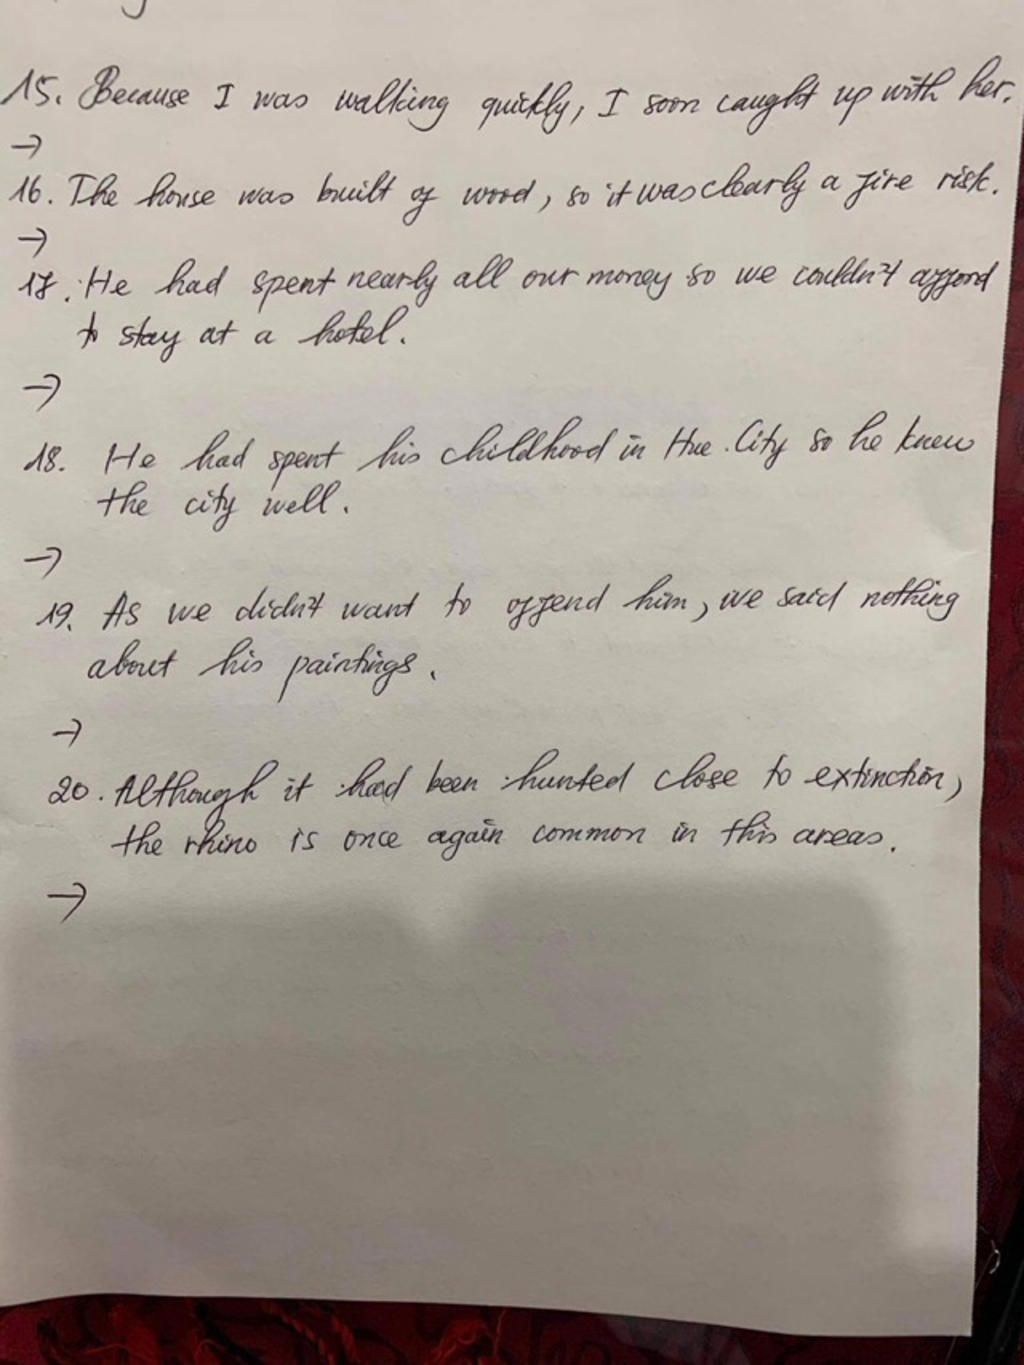 15. Because I was walking quickly, I soon caught up with her.
→
16. The house was built of wood, so it was clearly a fire risk.
→
17. He had spent nearly all our money so we couldn't afford
to stay at a hotel.
→
18. He had spent his childhood in Hue City so he knew
the city well.
→
19. As we didn't want to offend him, we said nothing
about his paintings.
→
20. Although it had been hunted close to extinction,
the rhino is once again common in this areas.
→